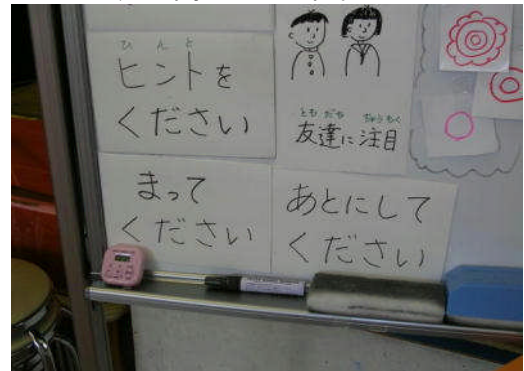 ひんと
ヒントを
ください
ともだち ちゅうもく
友達に注目
まって
ください
あとにして
ください